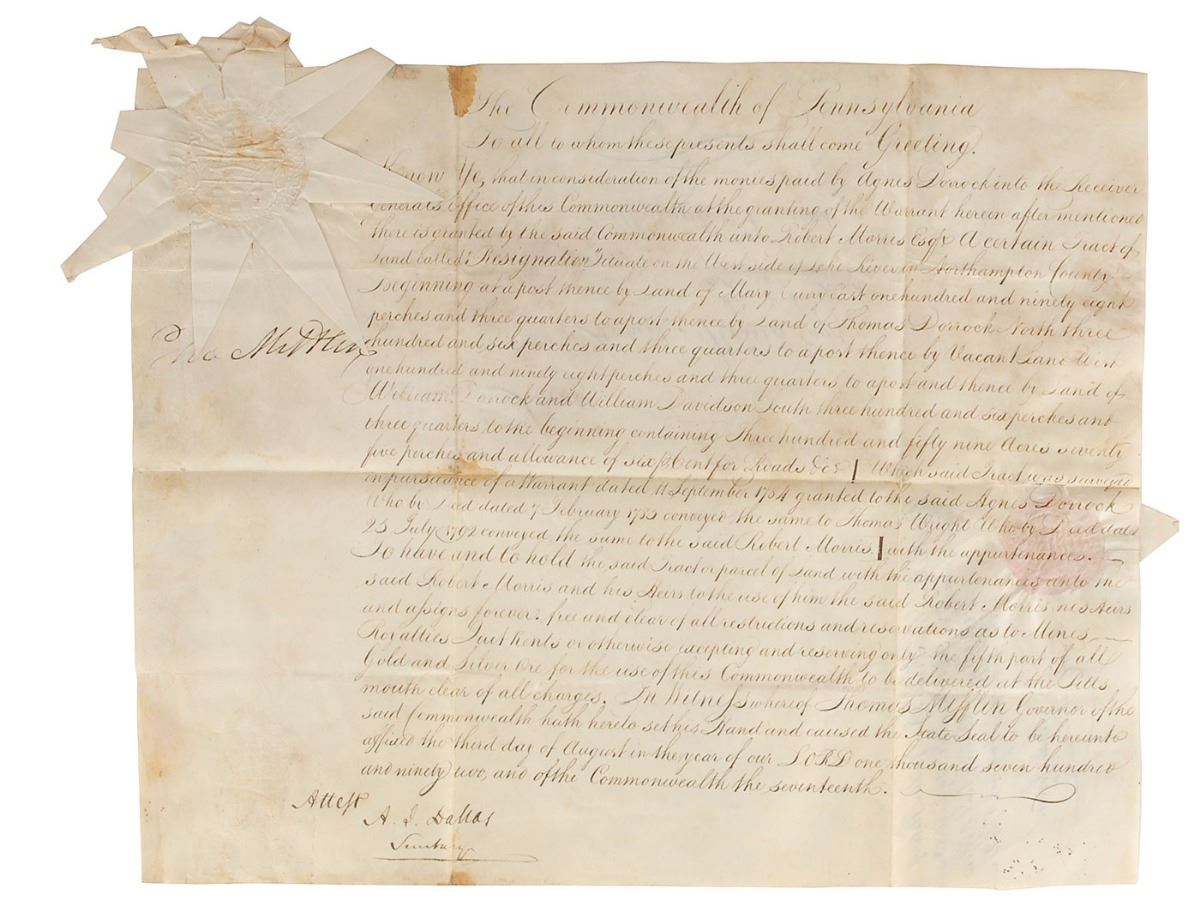 The Commonwealth of Pennsylvania
To all to whom these presents shall come Greeting.
Know Ye, that in consideration of the monies paid by Agnes Dorrock into the Receiver
General's Office of this Commonwealth at the granting of the Warrant herein after mentioned
there is granted by the said Commonwealth unto Robert Morris Esqr. A certain Tract of
Land called "Resignation" situate on the West side of the River in Northampton County
Beginning at a post thence by Land of Mary East one hundred and ninety eight
perches and three quarters to a post thence by Land of Thomas Dorrock North three
hundred and six perches and three quarters to a post thence by Vacant Land West
one hundred and ninety eight perches and three quarters to a post and thence by Land of
William Dorrock and William Davidson South three hundred and six perches and
three quarters to the beginning containing Three hundred and fifty nine Acres seventy
five perches and allowance of six P Cent for Roads &c | Which said Tract was surveyed
in pursuance of a Warrant dated 11 September 1784 granted to the said Agnes Dorrock
Who by Deed dated 7 February 1785 conveyed the same to Thomas Wright Who by Deed dated
25 July 1792 conveyed the same to the said Robert Morris | with the appurtenances.
To have and to hold the said Tract or parcel of Land with the appurtenances unto the
said Robert Morris and his Heirs to the use of him the said Robert Morris, his Heirs
and assigns forever free and clear of all restrictions and reservations as to Mines,
Royalties Quit Rents or otherwise excepting and reserving only the fifth part of all
Gold and Silver Ore for the use of this Commonwealth to be delivered at the Pitts
mouth clear of all charges. In Witness whereof Thomas Mifflin Governor of the
said Commonwealth hath hereto set his Hand and caused the State Seal to be hereunto
affixed the third day of August in the year of our LORD one thousand seven hundred
and ninety two, and of the Commonwealth the seventeenth.
Tho Mifflin
Attest
A. J. Dallas
Secretary